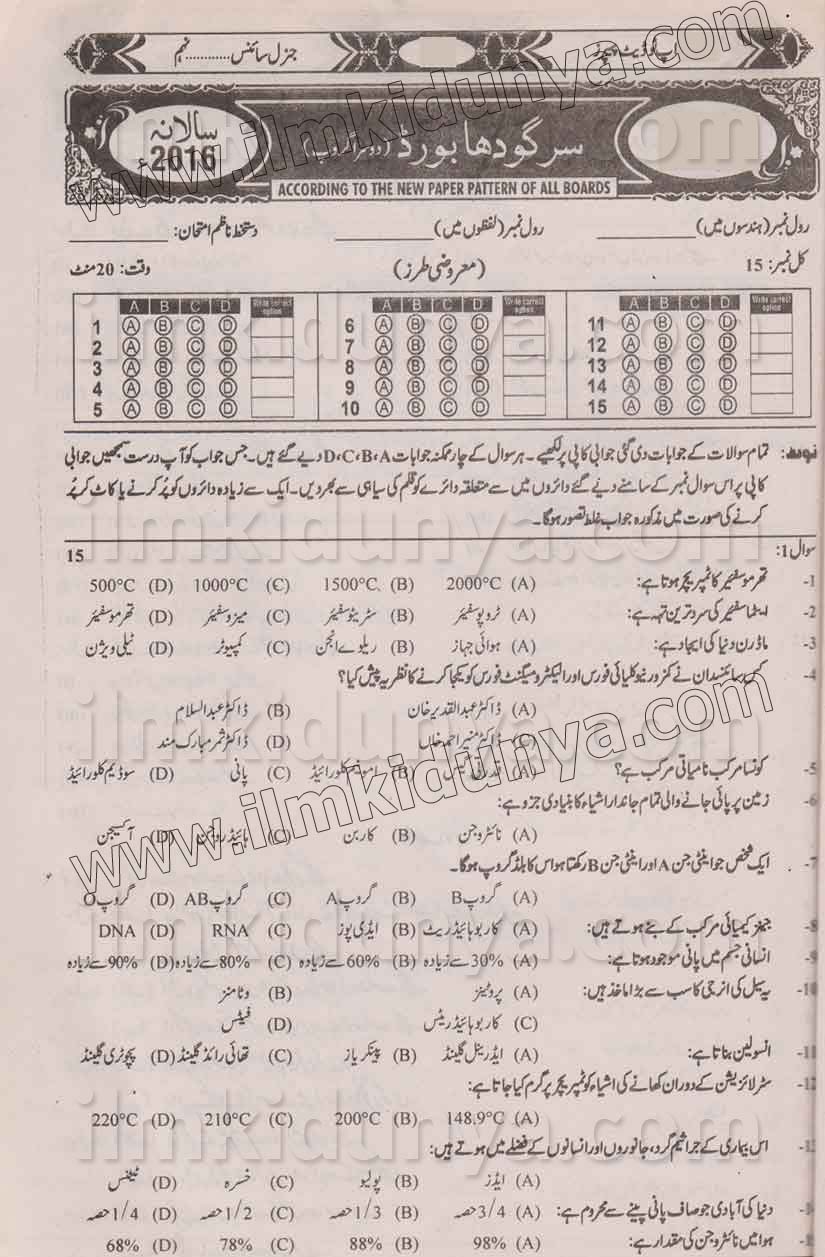 اپ ٹو ڈیٹ پیپرز
جنرل سائنس............نہم
سرگودھا بورڈ (دوسرا گروپ)
سالانہ 2016ء
ACCORDING TO THE NEW PAPER PATTERN OF ALL BOARDS
رول نمبر (ہندسوں میں) ____________ رول نمبر (لفظوں میں) ____________ دستخط ناظم امتحان: ____________
کل نمبر: 15 (معروضی طرز) وقت: 20 منٹ
A B C D Write correct option A B C D Write correct option A B C D Write correct option
1 A B C D 6 A B C D 11 A B C D
2 A B C D 7 A B C D 12 A B C D
3 A B C D 8 A B C D 13 A B C D
4 A B C D 9 A B C D 14 A B C D
5 A B C D 10 A B C D 15 A B C D
نوٹ: تمام سوالات کے جوابات دی گئی جوابی کاپی پر لکھیے۔ ہر سوال کے چار ممکنہ جوابات D،C،B،A دیے گئے ہیں۔ جس جواب کو آپ درست سمجھیں جوابی
کاپی پر اس سوال نمبر کے سامنے دیے گئے دائروں میں سے متعلقہ دائرے کو قلم کی سیاہی سے بھر دیں۔ ایک سے زیادہ دائروں کو پُر کرنے یا کاٹ کر پُر
کرنے کی صورت میں مذکورہ جواب غلط تصور ہوگا۔
سوال 1: 15
1- تھرموسفیئر کا ٹمپریچر ہوتا ہے: (A) 2000°C (B) 1500°C (C) 1000°C (D) 500°C
2- ایٹماسفیئر کی سرد ترین تہہ ہے: (A) ٹروپوسفیئر (B) سٹریٹوسفیئر (C) میزوسفیئر (D) تھرموسفیئر
3- ماڈرن دنیا کی ایجاد ہے: (A) ہوائی جہاز (B) ریلوے انجن (C) کمپیوٹر (D) ٹیلی ویژن
4- کس سائنسدان نے کمزور نیوکلیائی فورس اور الیکٹرو میگنٹ فورس کو یکجا کرنے کا نظریہ پیش کیا؟
(A) ڈاکٹر عبدالقدیر خان (B) ڈاکٹر عبدالسلام
(C) ڈاکٹر منیر احمد خاں (D) ڈاکٹر ثمر مبارک مند
5- کونسا مرکب نامیاتی مرکب ہے؟ (A) قدرتی گیس (B) امونیم کلورائیڈ (C) پانی (D) سوڈیم کلورائیڈ
6- زمین پر پائی جانے والی تمام جاندار اشیاء کا بنیادی جزو ہے:
(A) نائٹروجن (B) کاربن (C) ہائیڈروجن (D) آکسیجن
7- ایک شخص جو اینٹی جن A اور اینٹی جن B رکھتا ہو اس کا بلڈ گروپ ہوگا۔
(A) گروپ B (B) گروپ A (C) گروپ AB (D) گروپ O
8- جینز کیمیائی مرکب کے بنے ہوتے ہیں: (A) کاربوہائیڈریٹ (B) ایڈی پوز (C) RNA (D) DNA
9- انسانی جسم میں پانی موجود ہوتا ہے: (A) 30% سے زیادہ (B) 60% سے زیادہ (C) 80% سے زیادہ (D) 90% سے زیادہ
10- یہ سیل کی انرجی کا سب سے بڑا ماخذ ہیں: (A) پروٹینز (B) وٹامنز
(C) کاربوہائیڈریٹس (D) فیٹس
11- انسولین بناتا ہے: (A) ایڈرینل گلینڈ (B) پینکریاز (C) تھائی رائڈ گلینڈ (D) پچوٹری گلینڈ
12- سٹرلائزیشن کے دوران کھانے کی اشیاء کو ٹمپریچر پر گرم کیا جاتا ہے:
(A) 148.9°C (B) 200°C (C) 210°C (D) 220°C
13- اس بیماری کے جراثیم گرد، جانوروں اور انسانوں کے فضلے میں ہوتے ہیں:
(A) ایڈز (B) پولیو (C) خسرہ (D) ٹیٹنس
دنیا کی آبادی جو صاف پانی پینے سے محروم ہے: (A) 3/4 حصہ (B) 1/3 حصہ (C) 1/2 حصہ (D) 1/4 حصہ
ہوا میں نائٹروجن کی مقدار ہے: (A) 98% (B) 88% (C) 78% (D) 68%
www.ilmkidunya.com
ilmkidunya.com